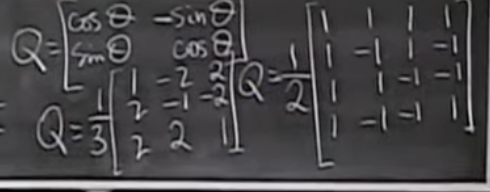 Q = [cos θ -sin θ
sin θ cos θ]
Q = 1/3 [1 -2 2
2 -1 -2
2 2 1]
Q = 1/2 [1 1 1 1
1 -1 1 -1
1 1 -1 -1
1 -1 -1 1]